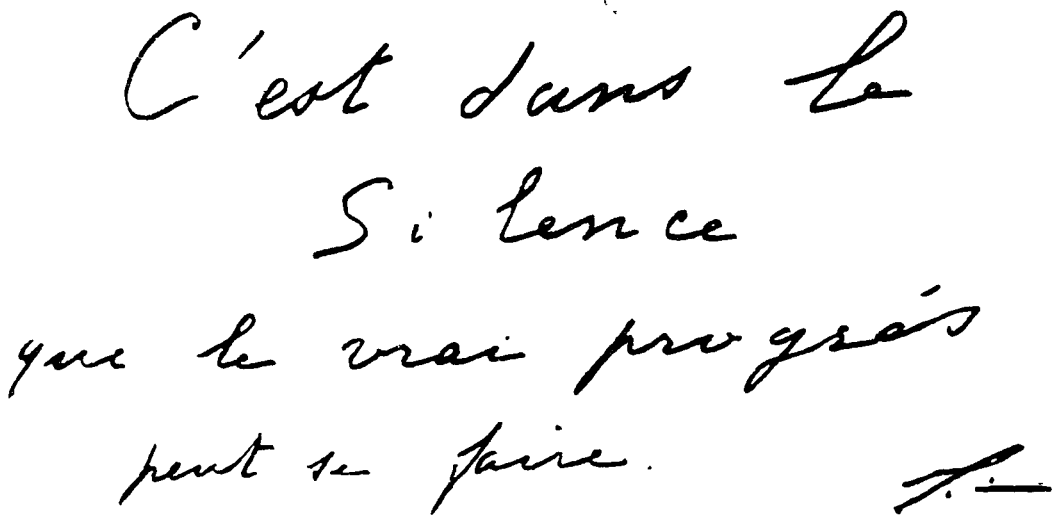 C'est dans le
Silence
que le vrai progrès
peut se faire.